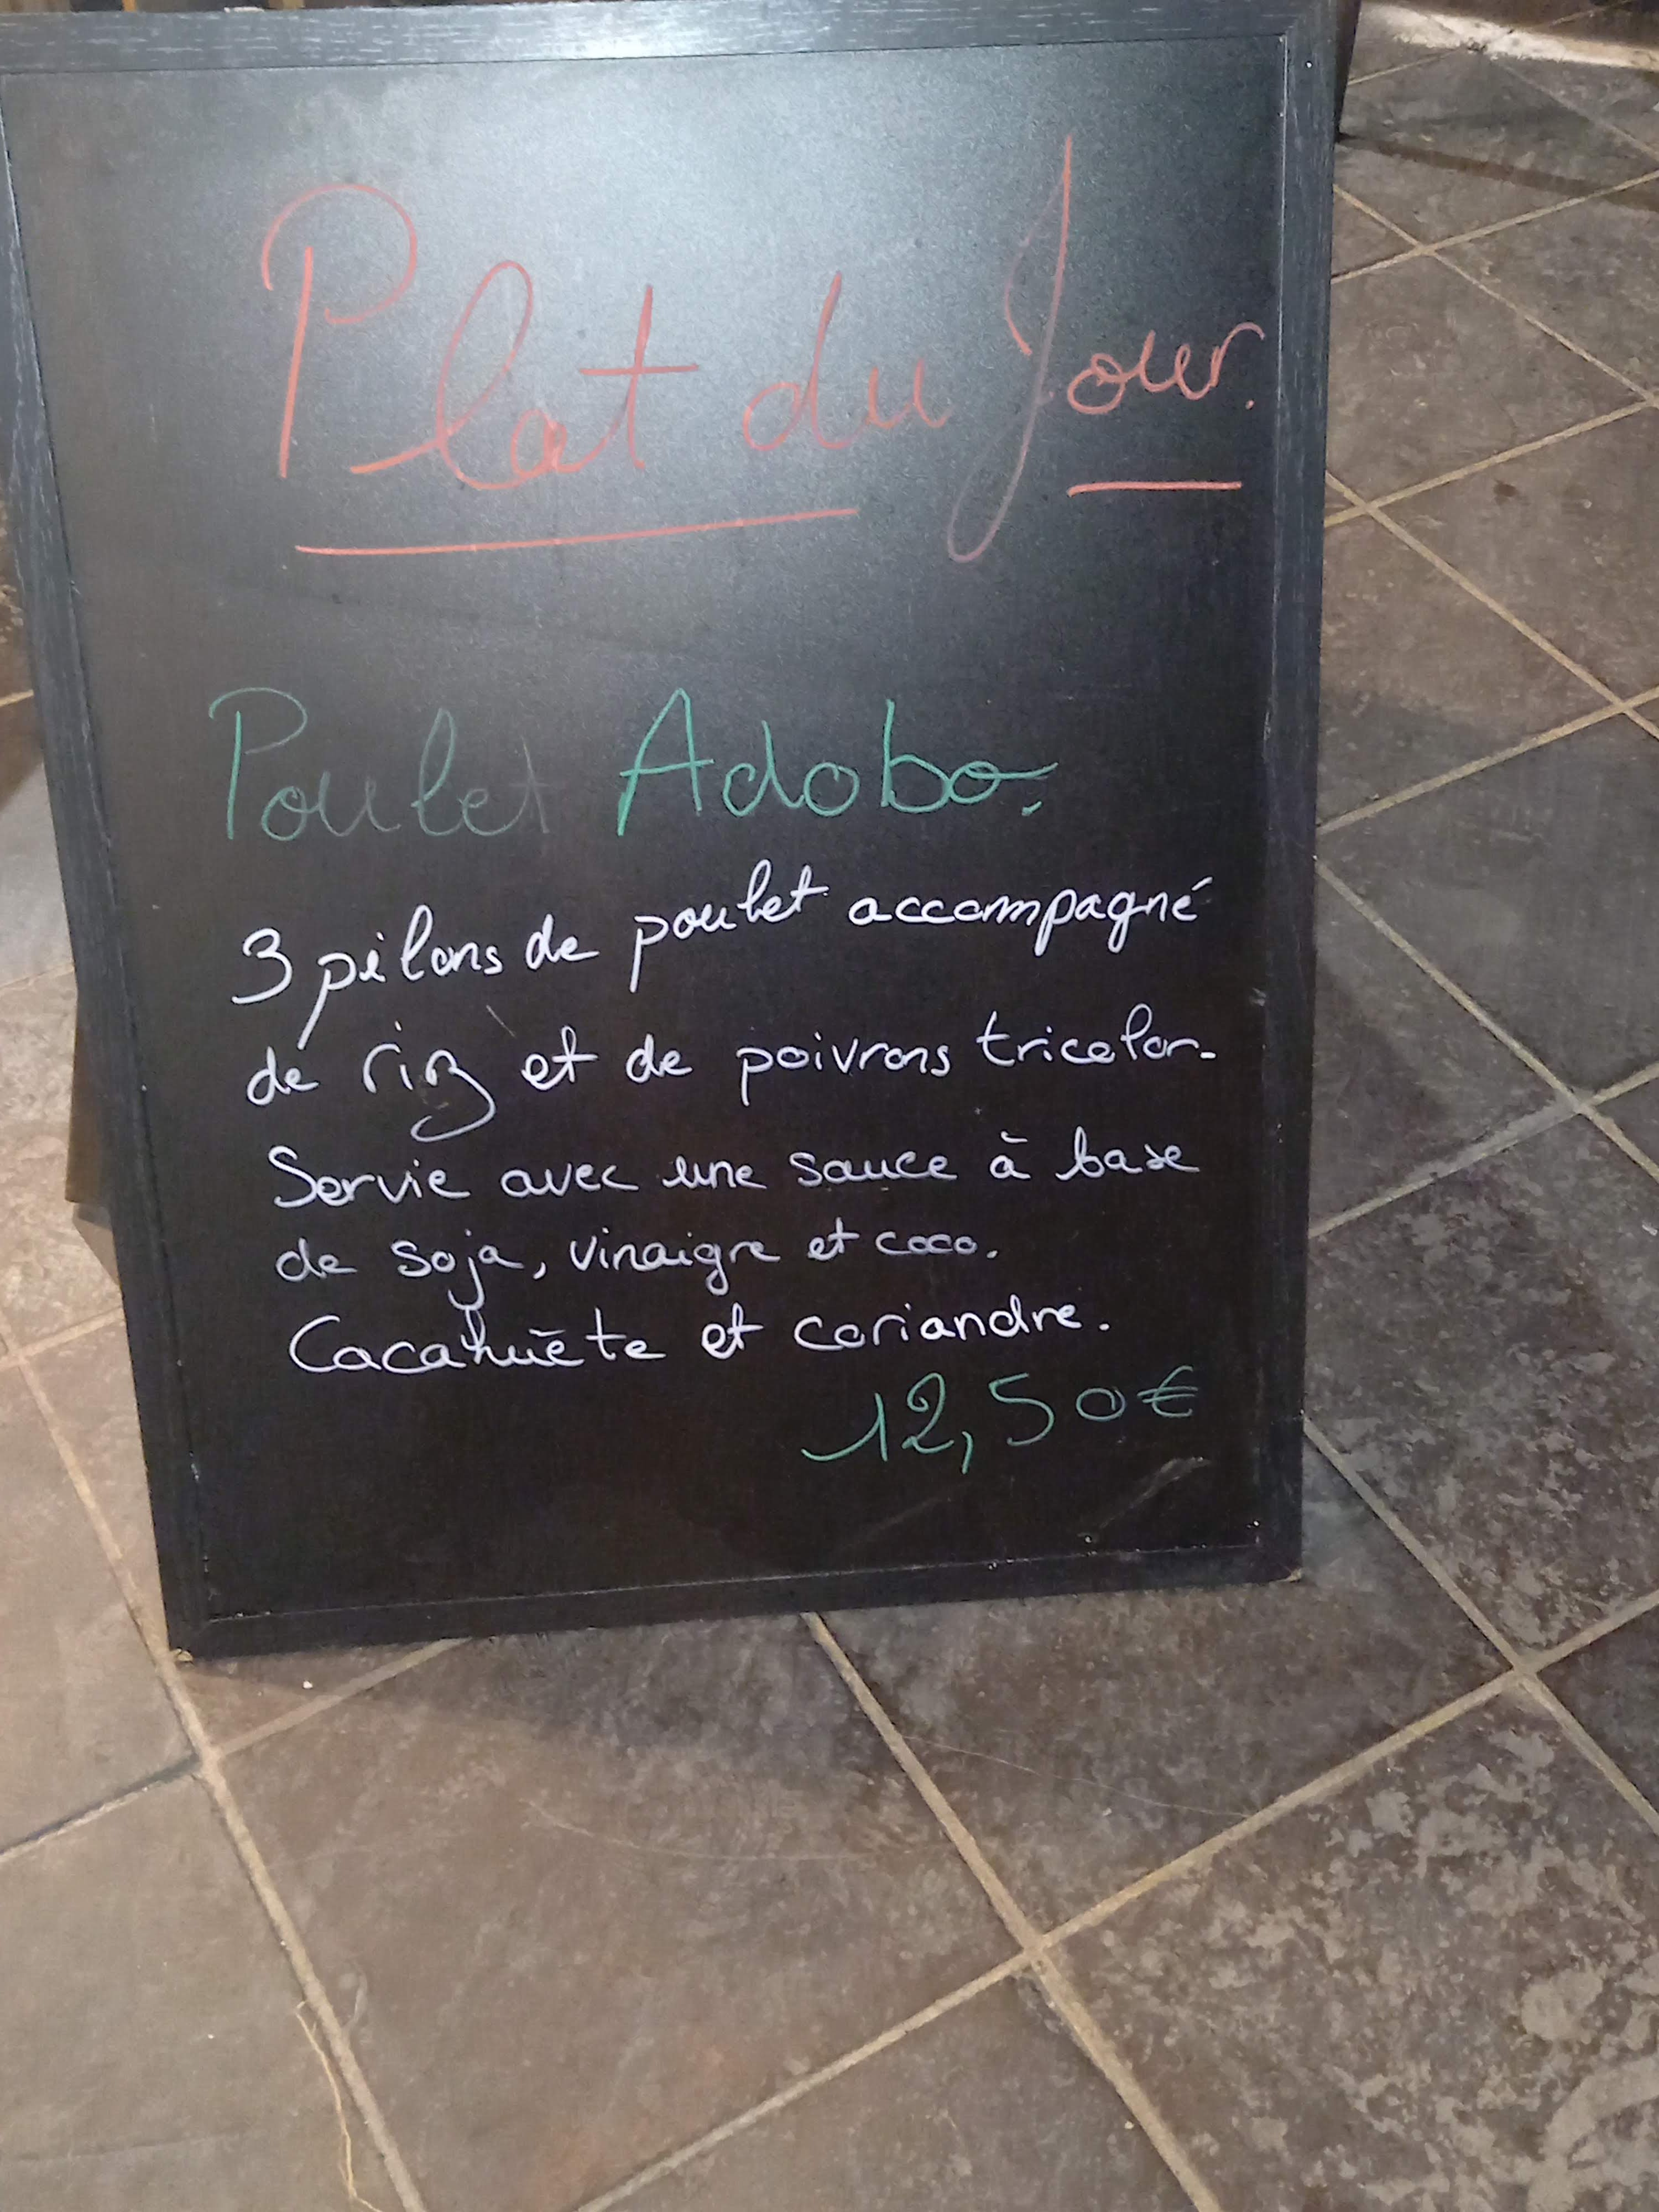 Plat du Jour.
Poulet Adobo.
3 pilons de poulet accompagné
de riz et de poivrons tricolor.
Servie avec une sauce à base
de soja, vinaigre et coco.
Cacahuète et coriandre.
12,50€